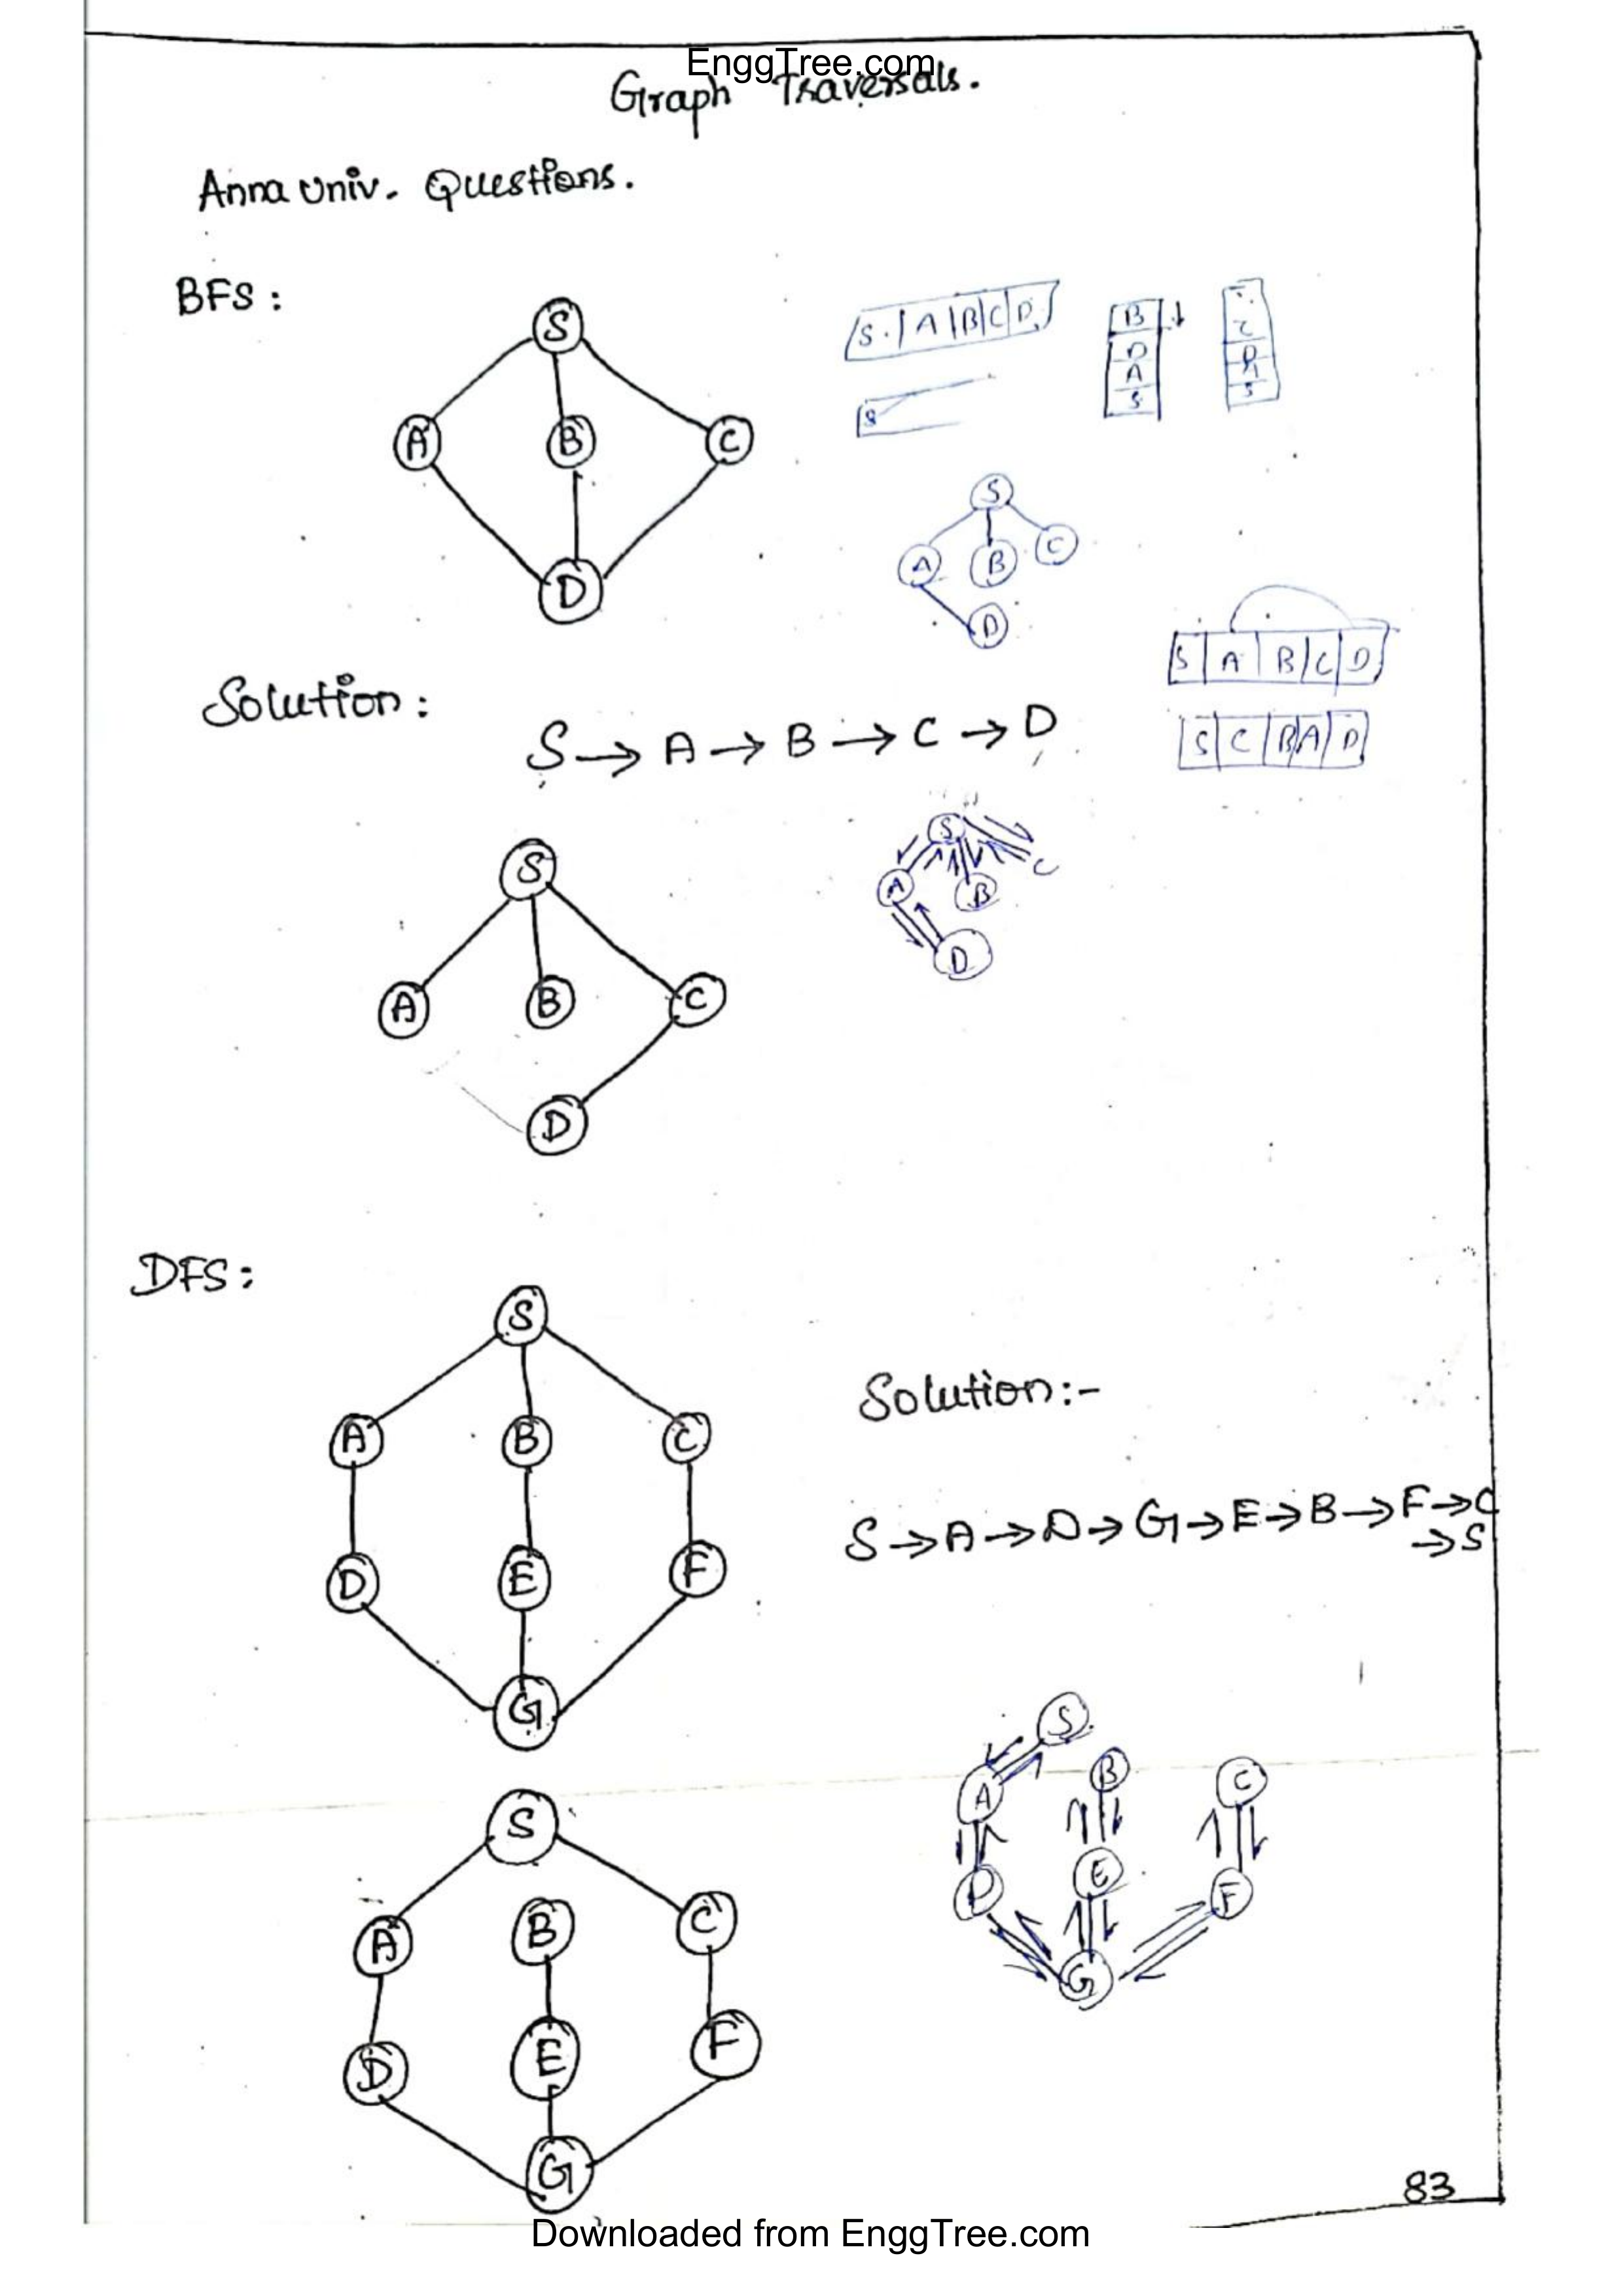 EnggTree.com
Graph Traversals.
Anna Univ. Questions.
BFS :
S
A B C
D
S. A B C D
S
B
D
A
S
C
D
A
S
S
A B C
D
S A B C D
S C B A D
Solution :
S → A → B → C → D
S
A B C
D
S
A B C
D
DFS :
S
A B C
D E F
G
Solution :-
S → A → D → G → E → B → F → C
→ S
S
A B C
D E F
G
S
A B C
D E F
G
83
Downloaded from EnggTree.com